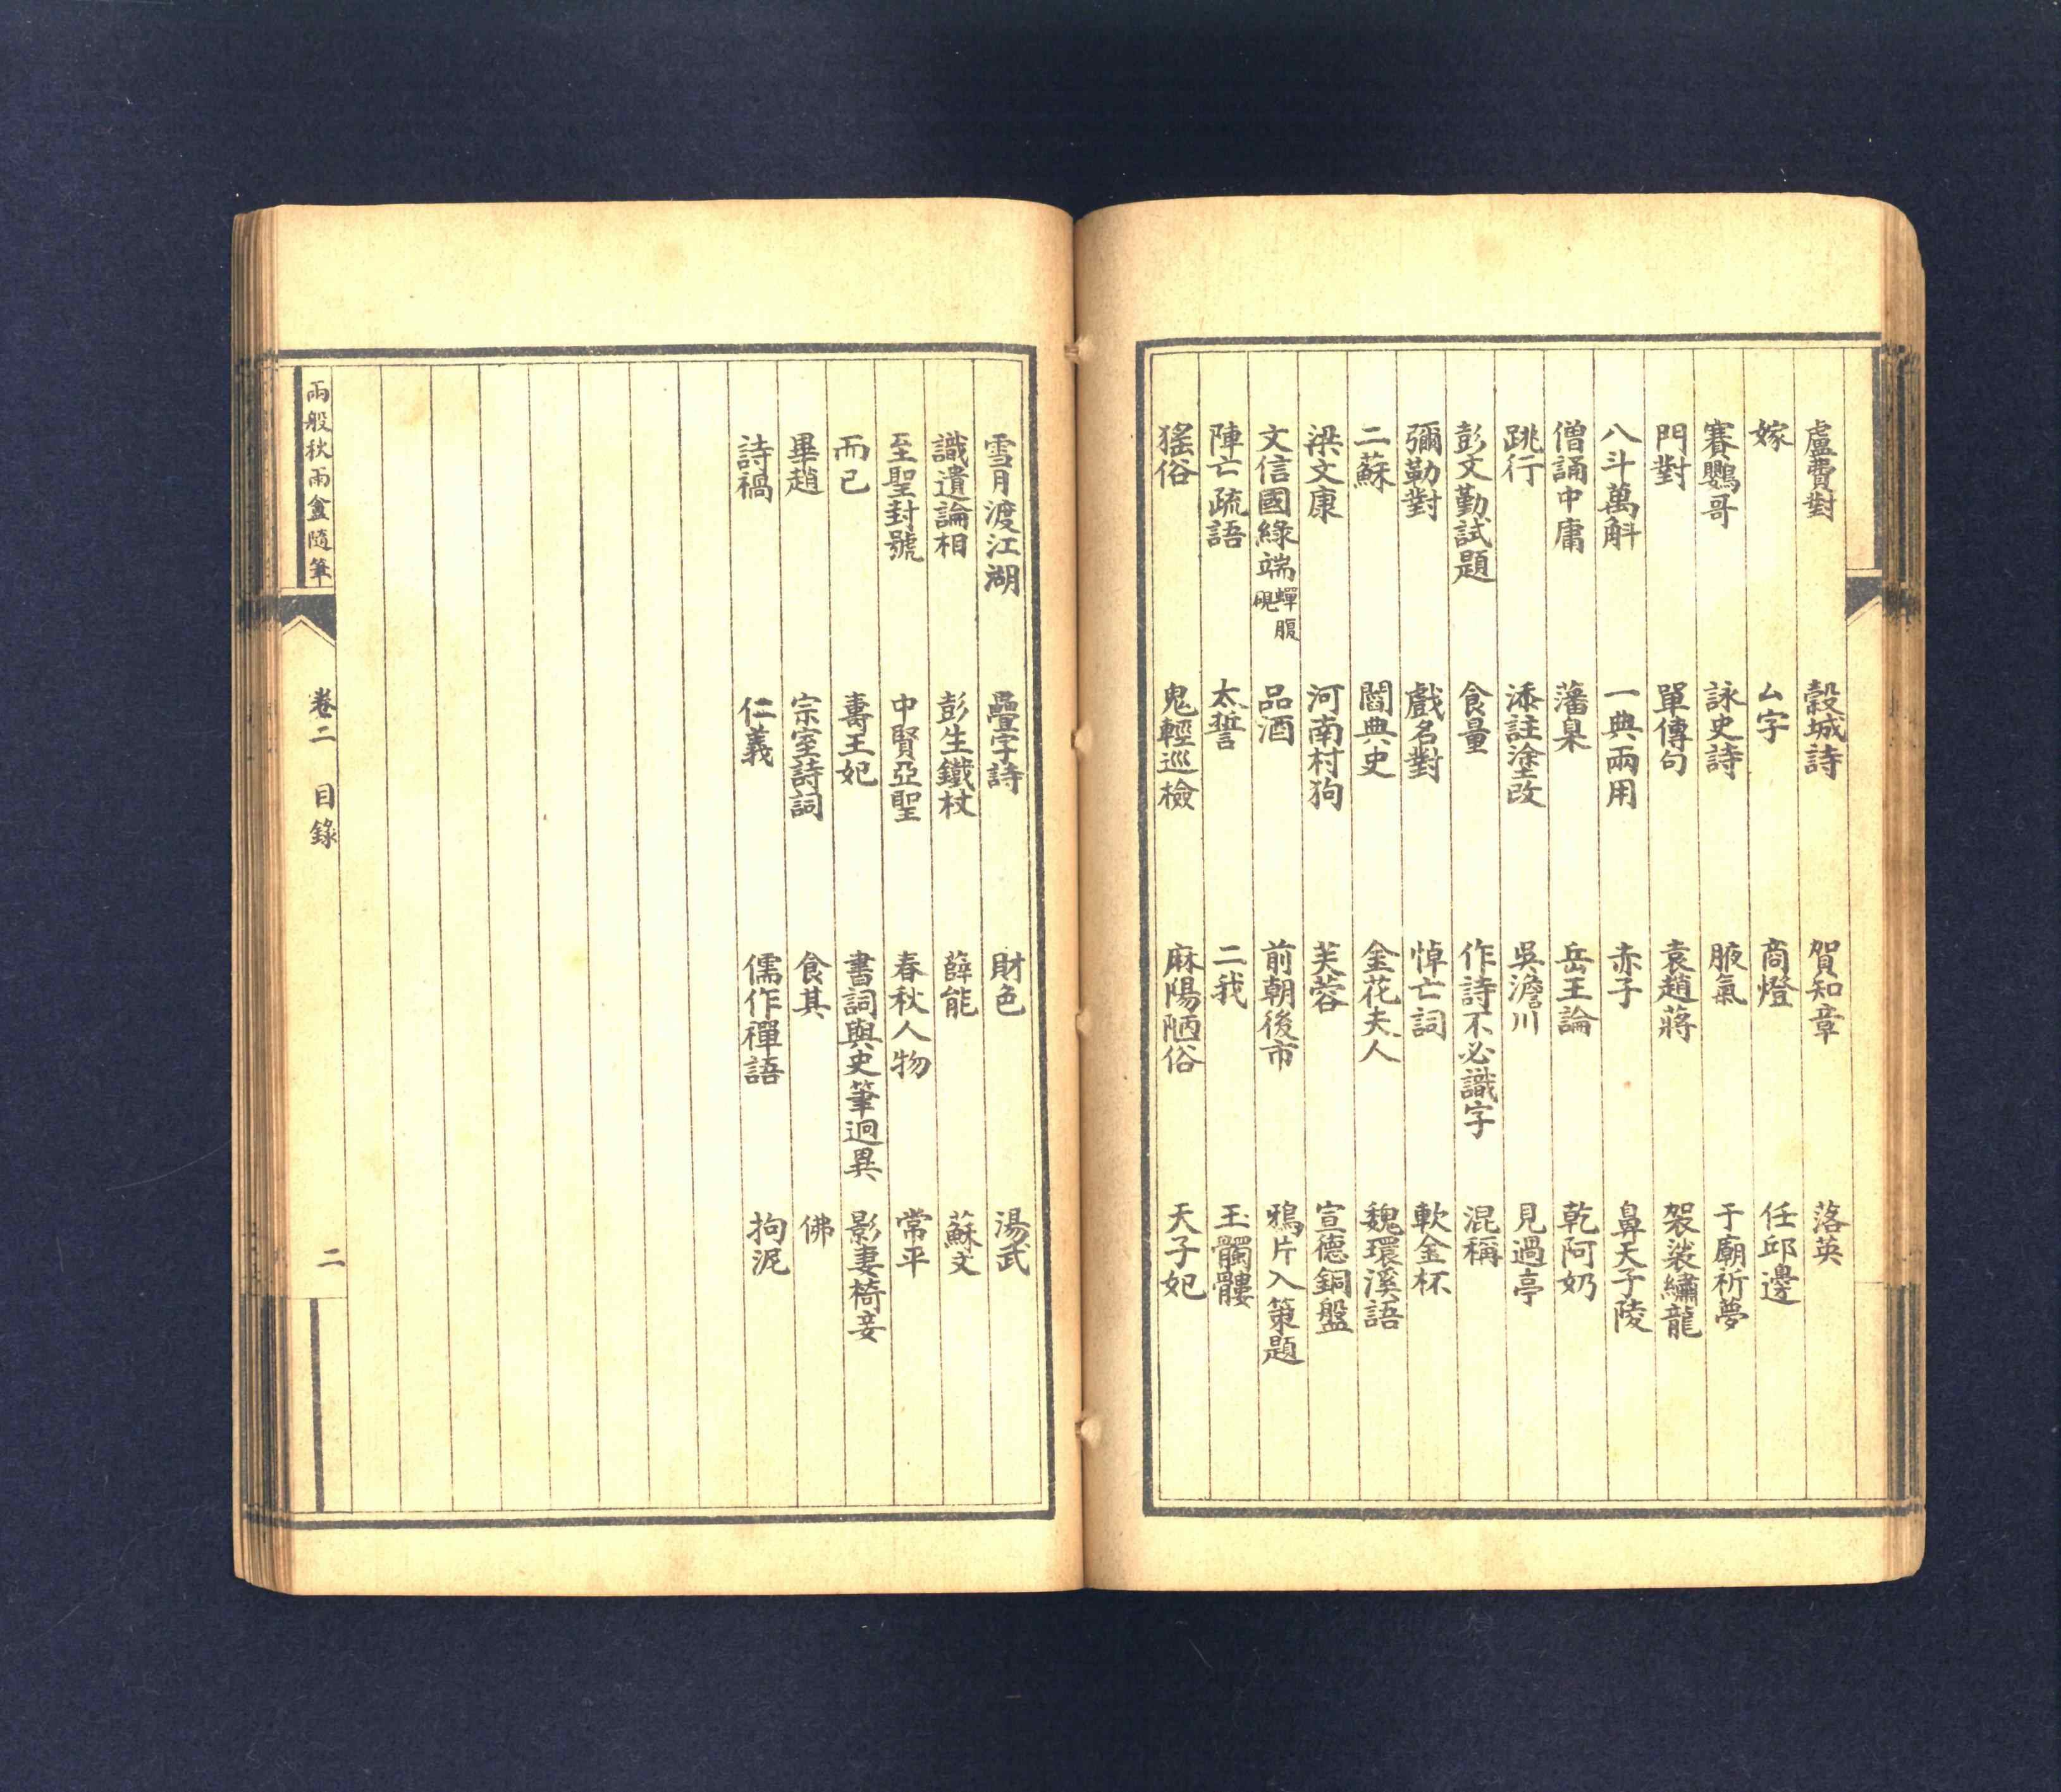 盧費對　穀城詩　賀知章　落英
嫁　厶字　商燈　任邱邊
賽鸚哥　詠史詩　腋氣　于廟祈夢
門對　單傳句　袁趙蔣　袈裟繡龍
八斗萬斛　一典兩用　赤子　鼻天子陵
僧誦中庸　藩臬　岳王論　乾阿奶
跳行　添註塗改　吳澹川　見過亭
彭文勤試題　食量　作詩不必識字　混稱
彌勒對　戲名對　悼亡詞　軟金杯
二蘇　閻典史　金花夫人　魏環溪語
梁文康　河南村狗　芙蓉　宣德銅盤
文信國綠端蟬腹硯　品酒　前朝後市　鴉片入策題
陣亡疏語　太誓　二我　玉髑髏
猺俗　鬼輕巡檢　麻陽陋俗　天子妃
雪月渡江湖　疊字詩　財色　湯武
識遺論相　彭生鐵杖　薛能　蘇文
至聖封號　中賢亞聖　春秋人物　常平
而已　壽王妃　書詞與史筆迥異　影妻椅妾
畢趙　宗室詩詞　食其　佛
詩禍　仁義　儒作禪語　拘泥
兩般秋雨盦隨筆　卷二　目錄　二